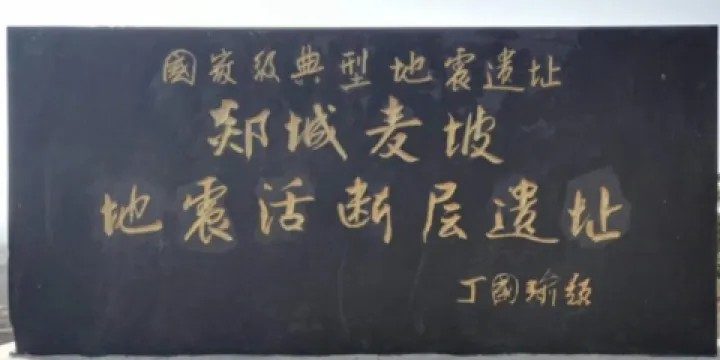 國家級典型地震遗址
郯城麦坡
地震活断层遗址
丁國瑜题